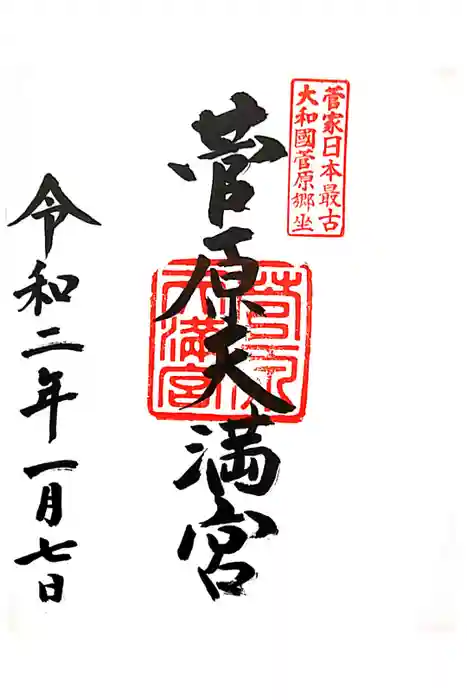 菅家日本最古
大和國菅原郷坐
菅原天満宮
菅原
天満宮
令和二年一月七日